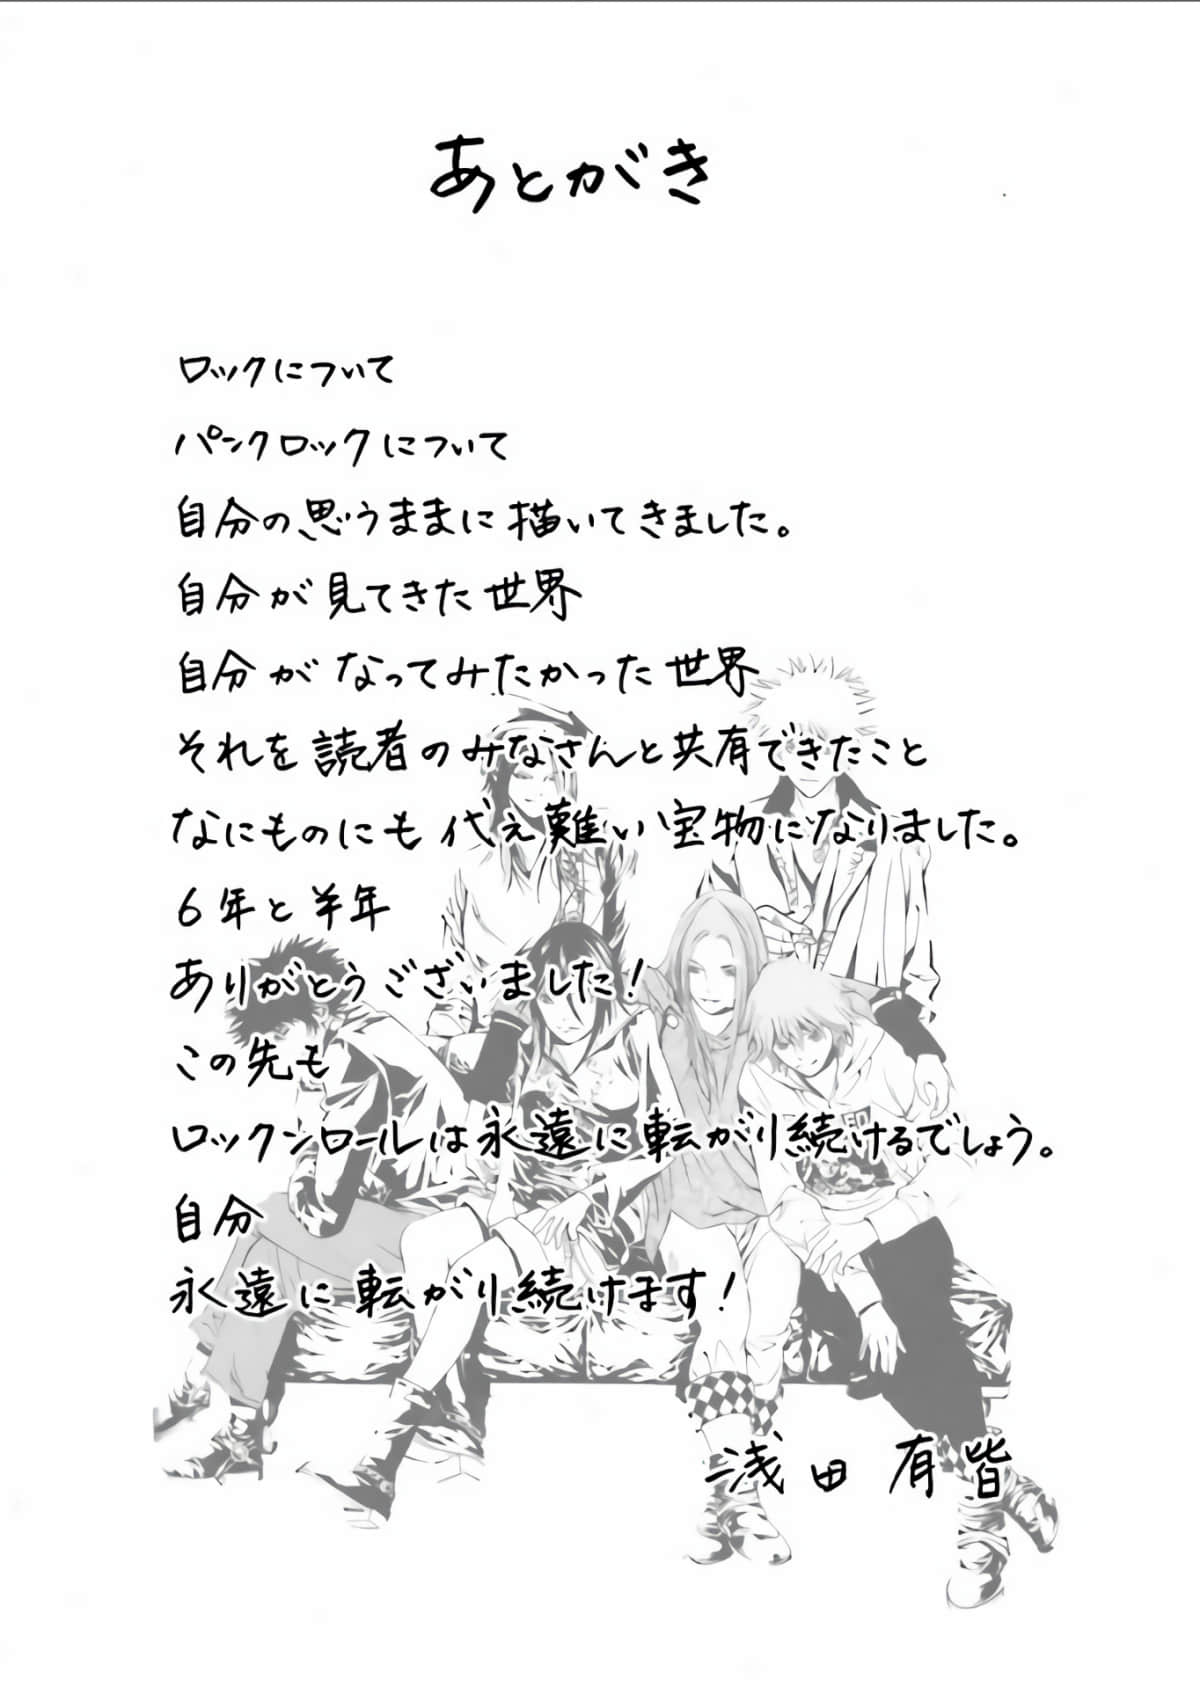 あとがき
ロックについて
パンクロックについて
自分の思うままに描いてきました。
自分が見てきた世界
自分がなってみたかった世界
それを読者のみなさんと共有できたこと
なにものにも代え難い宝物になりました。
6年と半年
ありがとうございました!
この先も
ロックンロールは永遠に転がり続けるでしょう。
自分
永遠に転がり続けます!
浅田有皆